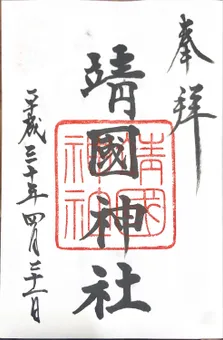 奉拝
靖國神社
平成三十年四月二十一日
靖國
神社